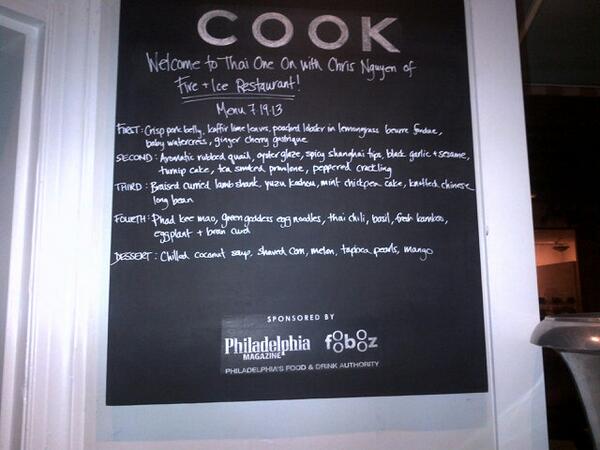 COOK
Welcome to Thai One On with Chris Nguyen of
Fire + Ice Restaurant!
Menu 7.19.13
FIRST: Crisp pork belly, kaffir lime leaves, poached lobster in lemongrass beurre fondue,
baby watercress, ginger cherry gastrique
SECOND: Aromatic rubbed quail, oyster glaze, spicy shanghai tips, black garlic + sesame,
turnip cake, tea smoked prawns, peppered crackling
THIRD: Braised curried lamb shank, yuzu koshou, mint chickpea cake, knotted chinese
long bean
FOURTH: Phad kee mao, green goddess egg noodles, thai chili, basil, fresh bamboo,
eggplant + bean curd
DESSERT: Chilled coconut soup, shaved corn, melon, tapioca pearls, mango
SPONSORED BY
Philadelphia foobooz
MAGAZINE
PHILADELPHIA'S FOOD & DRINK AUTHORITY